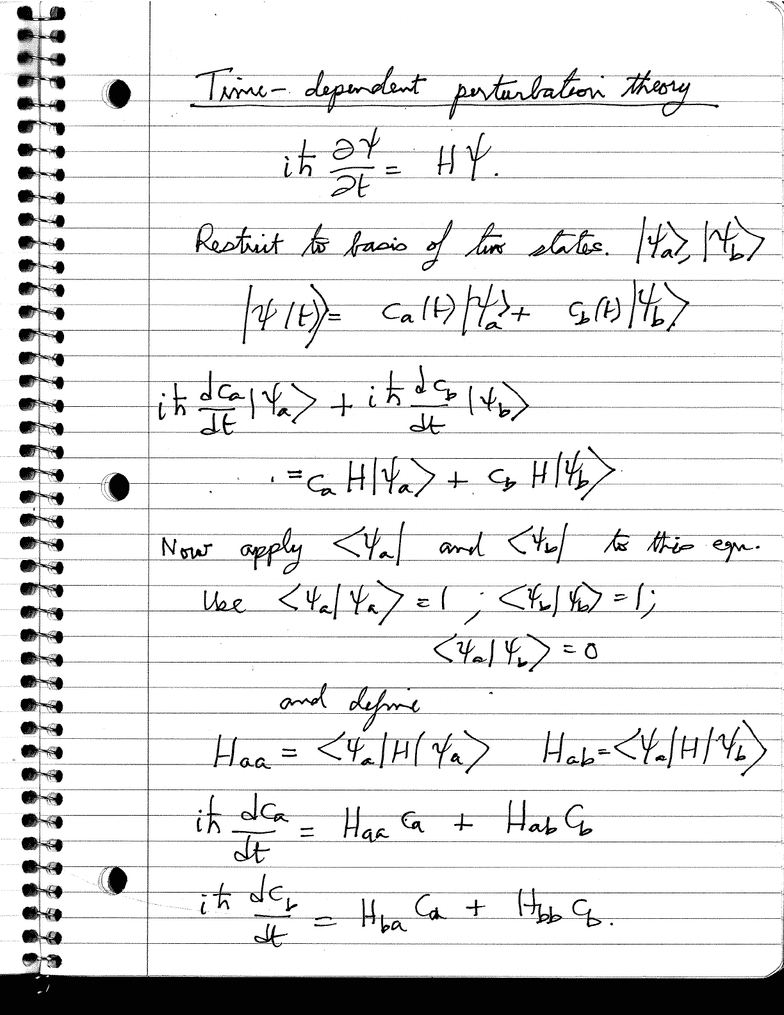 Time-dependent perturbation theory
iħ ∂Ψ/∂t = HΨ.
Restrict to basis of two states. |Ψa⟩, |Ψb⟩
|Ψ(t)⟩ = ca(t)|Ψa⟩ + cb(t)|Ψb⟩
iħ dca/dt |Ψa⟩ + iħ dcb/dt |Ψb⟩
= ca H|Ψa⟩ + cb H|Ψb⟩
Now apply ⟨Ψa| and ⟨Ψb| to this eqn.
Use ⟨Ψa|Ψa⟩ = 1 ; ⟨Ψb|Ψb⟩ = 1;
⟨Ψa|Ψb⟩ = 0
and define
Haa = ⟨Ψa|H|Ψa⟩ Hab = ⟨Ψa|H|Ψb⟩
iħ dca/dt = Haa ca + Hab cb
iħ dcb/dt = Hba ca + Hbb cb.